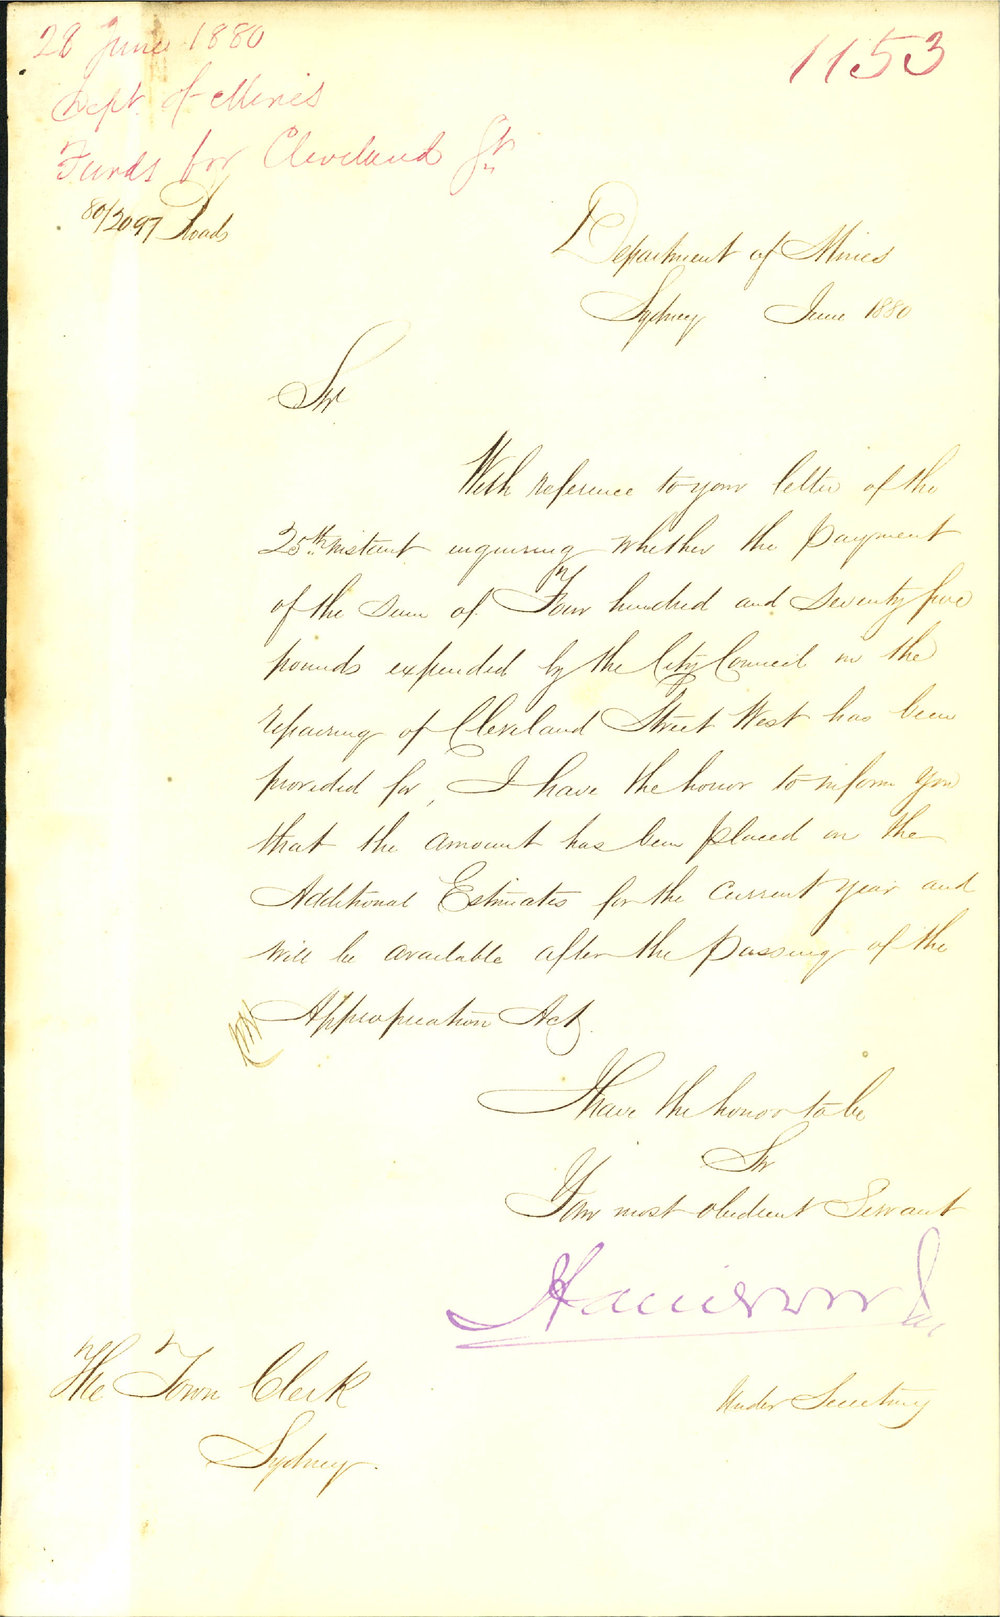 28 June 1880
Dept. of Mines
Funds for Cleveland St
1153
80/2097 Roads
Department of Mines
Sydney June 1880
Sir
With reference to your letter of the
25th instant enquiring whether the payment
of the sum of Four hundred and seventy five
pounds expended by the City Council in the
repairing of Cleveland Street West has been
provided for, I have the honor to inform you
that the amount has been placed on the
Additional Estimates for the current year and
will be available after the passing of the
Appropriation Act.
I have the honor to be
Sir
Your most obedient Servant
Under Secretary
The Town Clerk
Sydney.